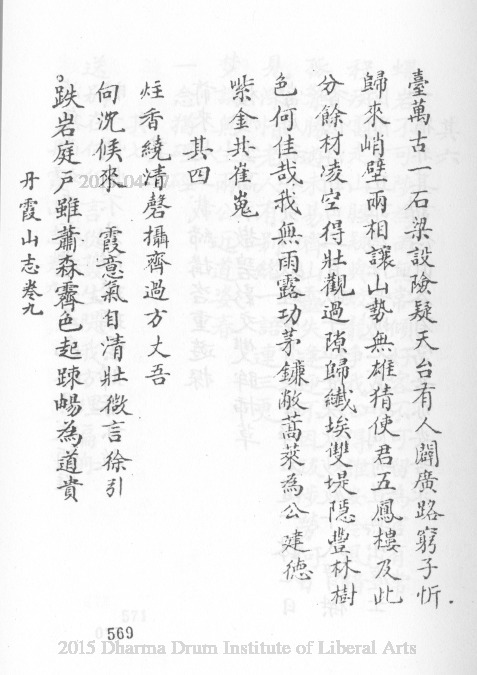 臺萬古一石梁設險疑天台有人闢廣路窮子忻
歸來峭壁兩相讓山勢無雄猜使君五鳳樓及此
分餘材凌空得壯觀過隙歸纖埃雙堤隱豐林樹
色何佳哉我無雨露功茅鐮敝蒿萊為公建德
紫金共崔嵬
其四
炷香繞清磬攝齊過方丈吾
何沈候來 霞意氣自清壯微言徐引
跌岩庭戸雖蕭森霽色起踈暢為道貴
丹霞山志卷九
569
2015 Dharma Drum Institute of Liberal Arts